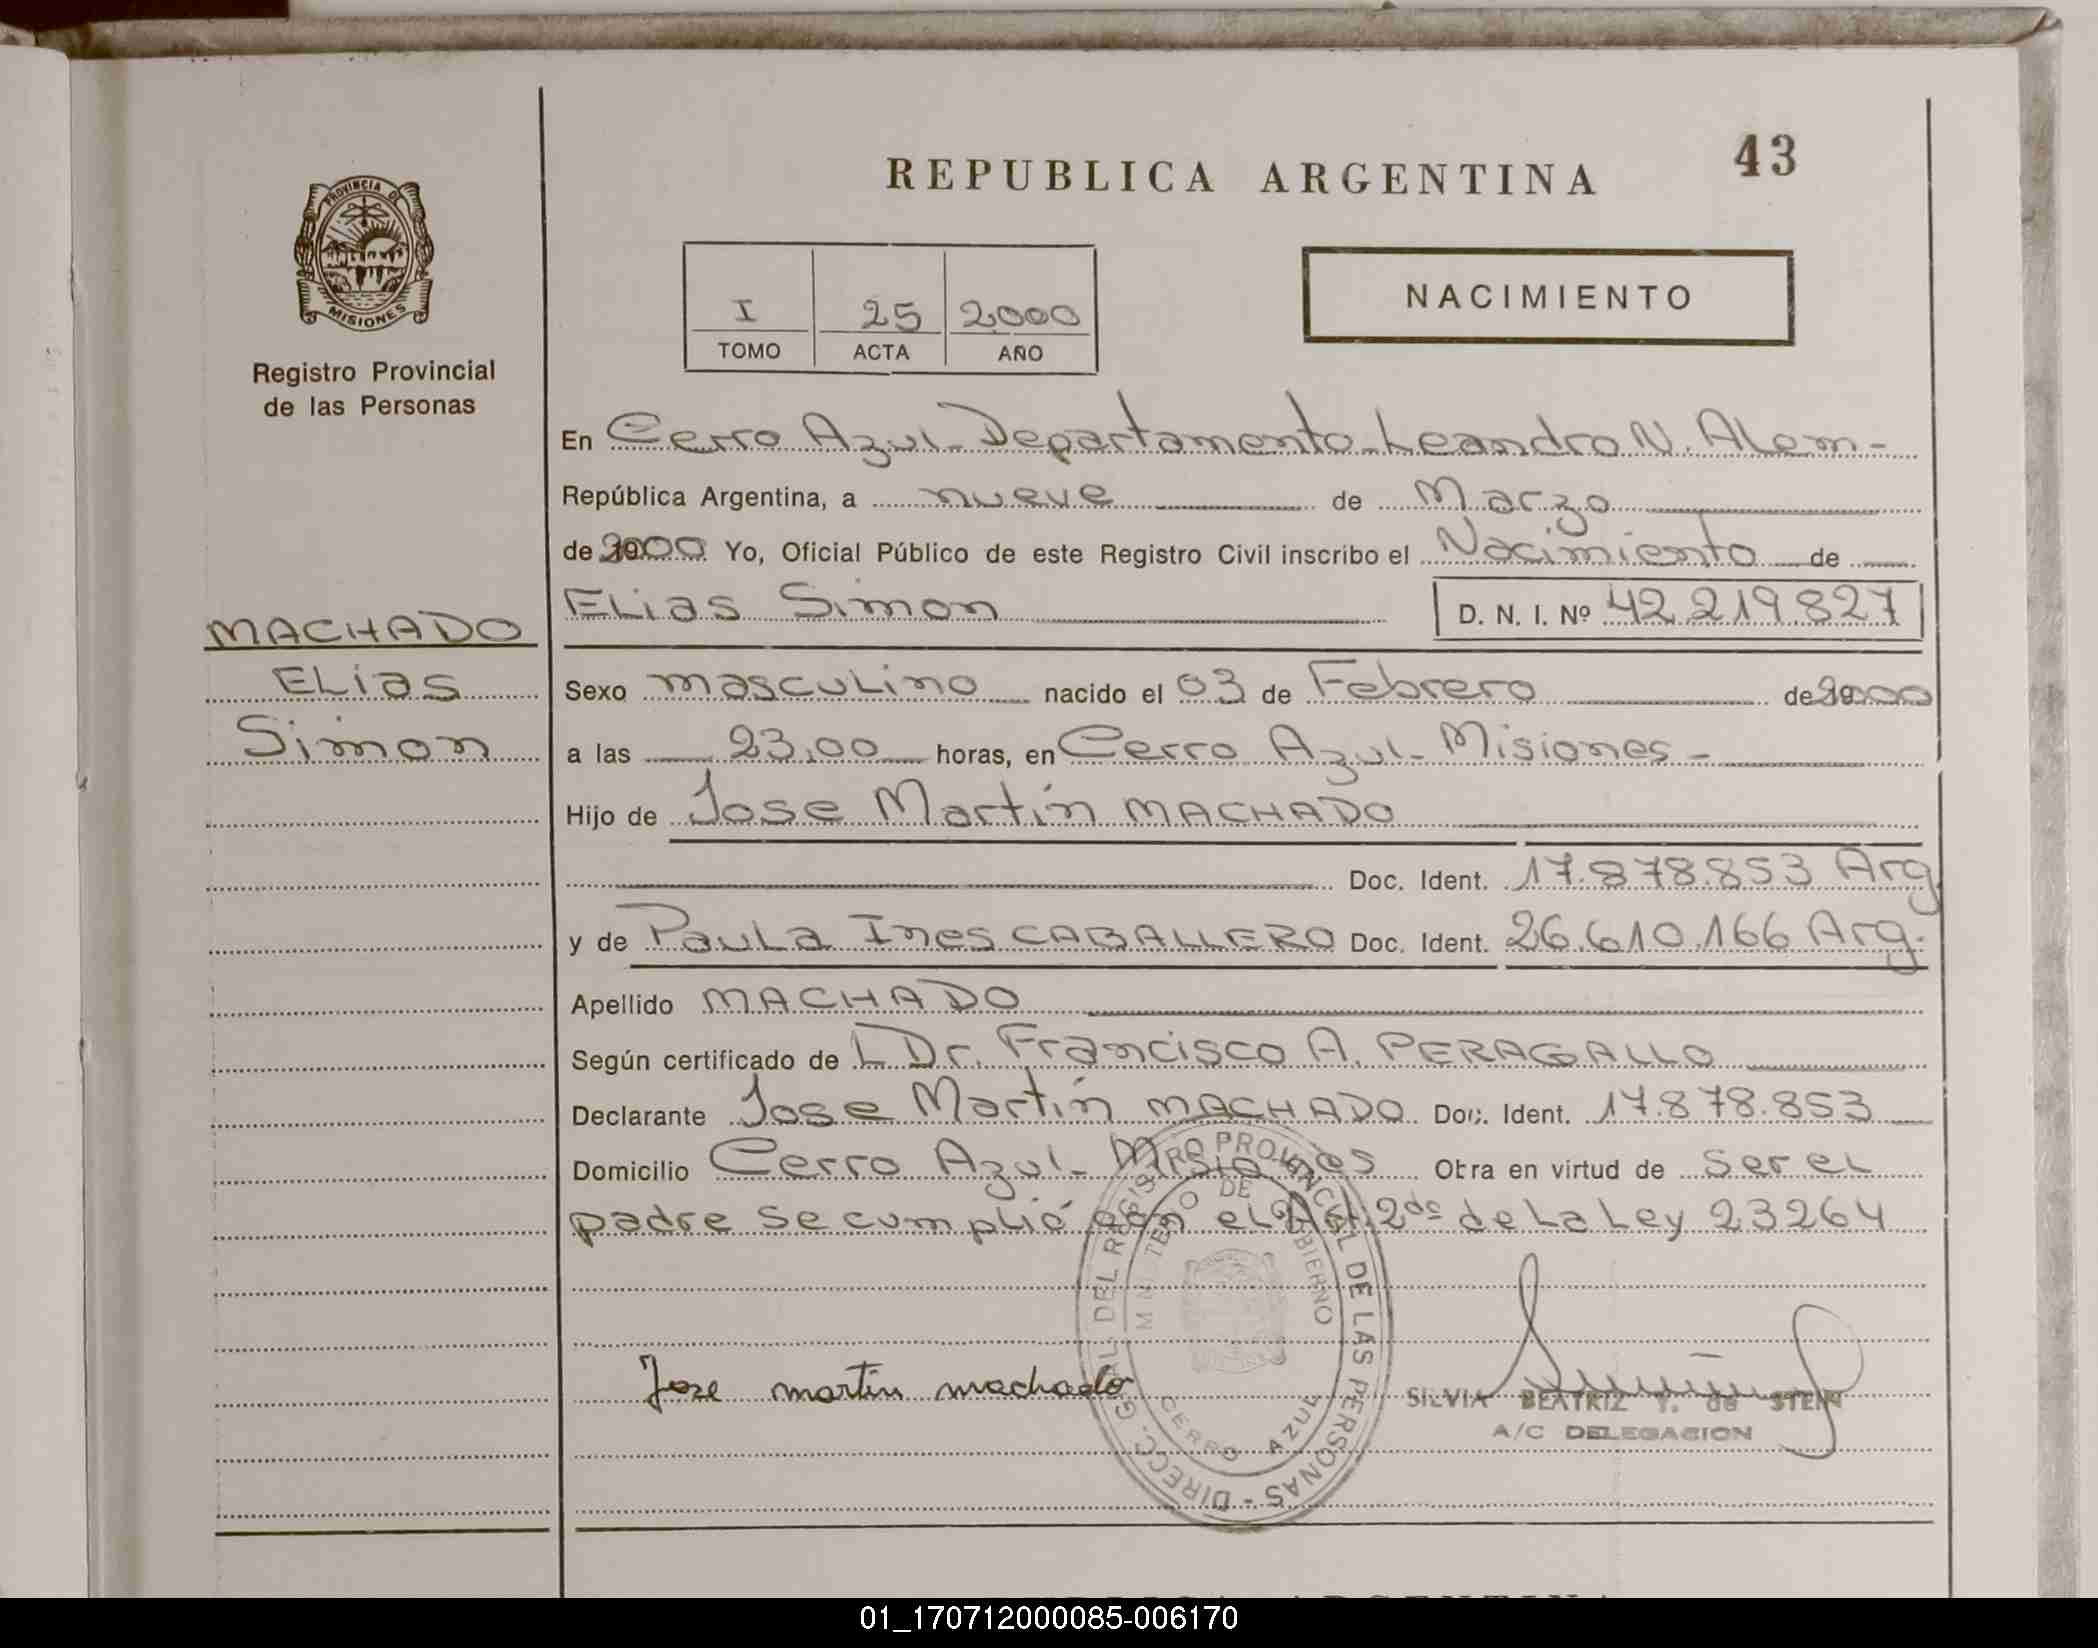 REPUBLICA ARGENTINA
43
PROVINCIA DE
MISIONES
Registro Provincial
de las Personas
I 25 2000
TOMO ACTA AÑO
NACIMIENTO
En Cerro Azul - Departamento - Leandro N. Alem -
República Argentina, a nueve de Marzo
de 2000 Yo, Oficial Público de este Registro Civil inscribo el Nacimiento de
Elias Simon D. N. I. Nº 42.219.827
MACHADO
Elias
Simon
Sexo masculino nacido el 03 de Febrero de 2000
a las 23,00 horas, en Cerro Azul - Misiones -
Hijo de Jose Martín MACHADO
Doc. Ident. 17.878.853 Arg
y de Paula Ines CABALLERO Doc. Ident. 26.610.166 Arg.
Apellido MACHADO
Según certificado de L Dr. Francisco A. PERAGALLO
Declarante Jose Martín MACHADO Doc. Ident. 17.878.853
Domicilio Cerro Azul - Misiones Obra en virtud de ser el
padre se cumplió con el Art. 2do de La Ley 23264
DIRECC. GRAL. DEL REGISTRO PROVINCIAL DE LAS PERSONAS -
MINISTERIO DE GOBIERNO
CERRO AZUL
Jose martin machado
SILVIA BEATRIZ T. de STEIN
A/C DELEGACION
01_170712000085-006170